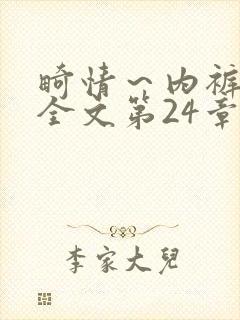 畸情～内裤
全文第24章
李家大兒